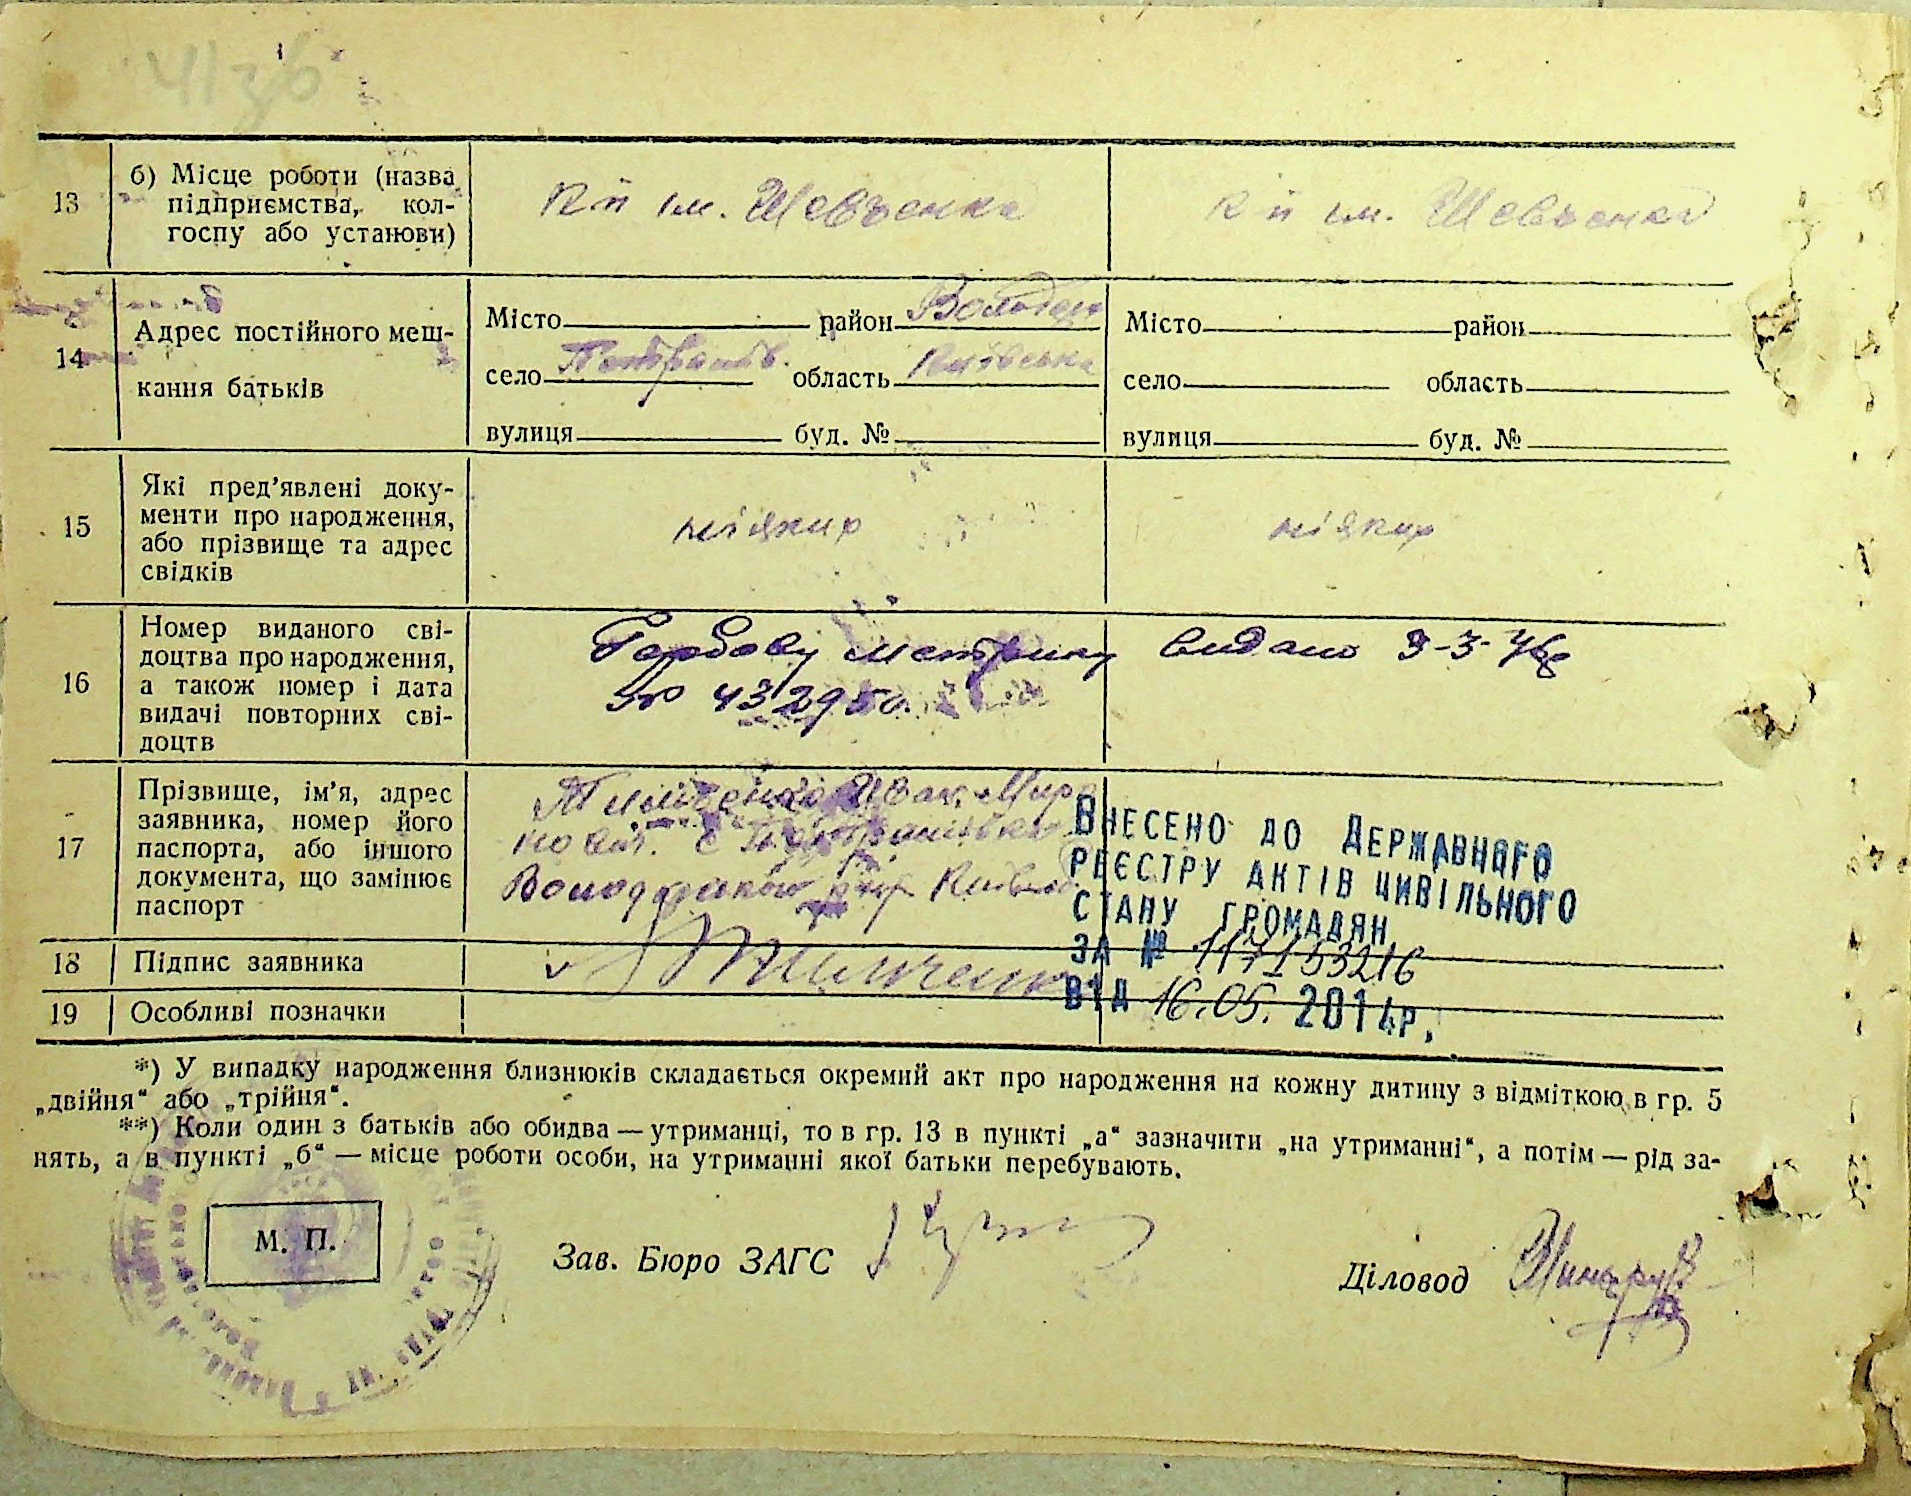 13
б) Місце роботи (назва
підприємства, кол-
госпу або установи)
к п ім. Шевченка
к п ім. Шевченка
14
Адрес постійного меш-
кання батьків
Місто район Володар
село Петрашів. область Київська
вулиця буд. №
Місто район
село область
вулиця буд. №
15
Які пред’явлені доку-
менти про народження,
або прізвище та адрес
свідків
ніяких
ніяких
16
Номер виданого сві-
доцтва про народження,
а також номер і дата
видачі повторних сві-
доцтв
Гербову метрику видано 3-3-46р
№ 432950.
17
Прізвище, ім’я, адрес
заявника, номер його
паспорта, або іншого
документа, що замінює
паспорт
Тимченко Іван Миро
нович. с
Київ
ВНЕСЕНО ДО ДЕРЖАВНОГО
РЕЄСТРУ АКТІВ ЦИВІЛЬНОГО
СТАНУ ГРОМАДЯН
ЗА № 117153216
ВІД 16.05. 2014р.
18
Підпис заявника
Тимченко
19
Особливі позначки
*) У випадку народження близнюків складається окремий акт про народження на кожну дитину з відміткою в гр. 5
„двійня“ або „трійня“.
**) Коли один з батьків або обидва — утриманці, то в гр. 13 в пункті „а“ зазначити „на утриманні“, а потім — рід за-
нять, а в пункті „б“ — місце роботи особи, на утриманні якої батьки перебувають.
М. П.
Зав. Бюро ЗАГС
Діловод